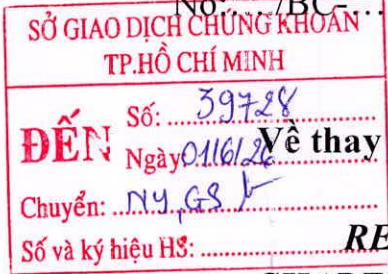 No:..../BC-...
SỞ GIAO DỊCH CHỨNG KHOÁN
TP.HỒ CHÍ MINH
ĐẾN
Số: 39728
Ngày 01/6/26
Về thay
Chuyển: NY, GS
Số và ký hiệu HS:
RE